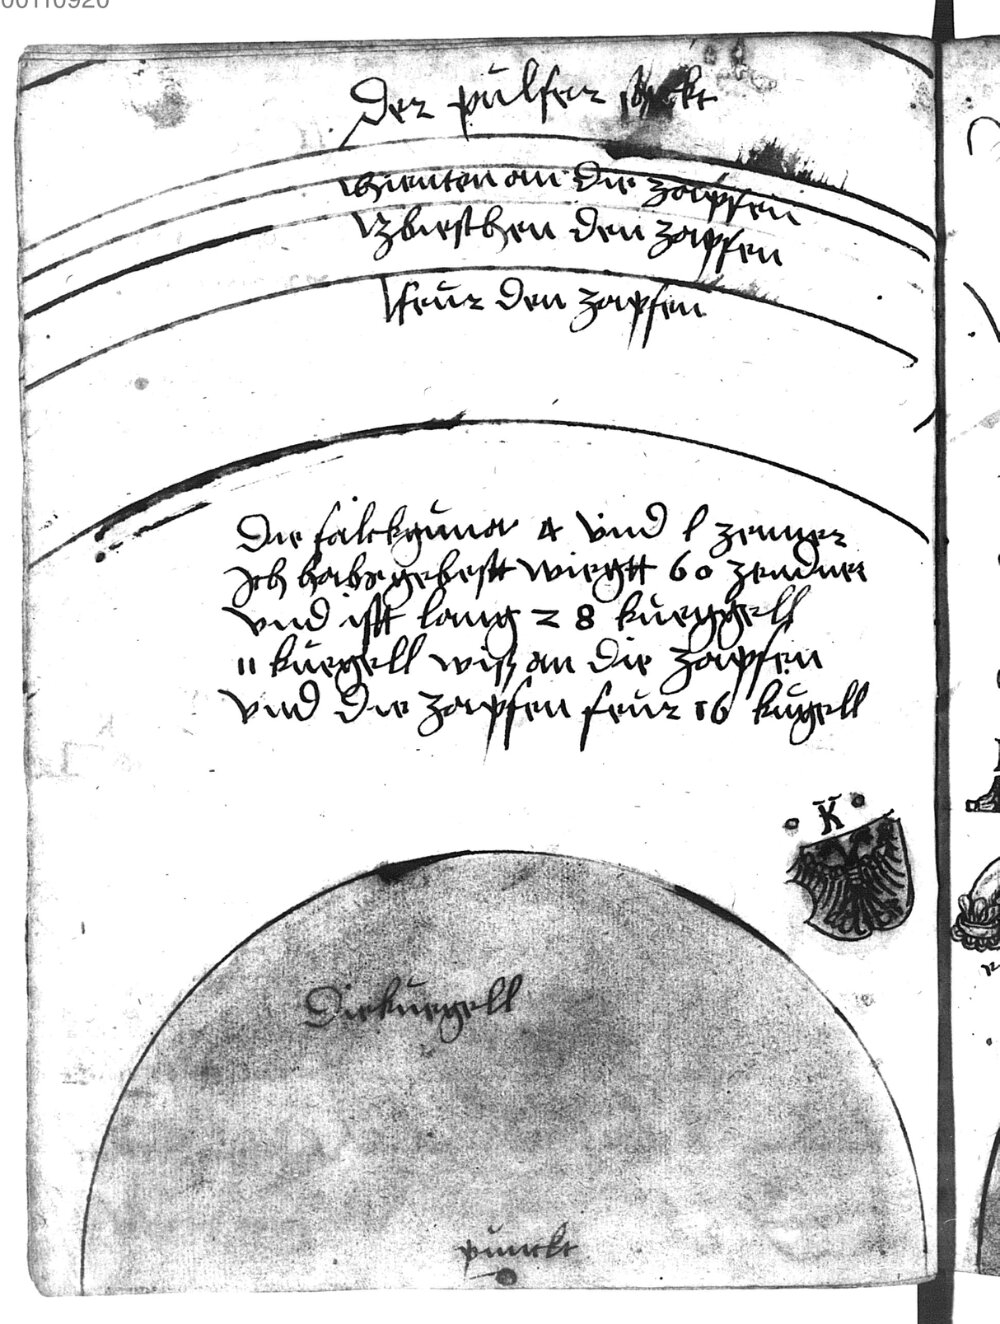 00110920
Der pulfer sackt
hienten an die zapfen
zbiesthen den zapfen
feur den zapfen
Die falckguna 4 vnd l zenger
Jch habs gehest wiegtt 60 zendner
vnd istt lang 28 kueggell
11 kuegell wiß an die zapfen
vnd die zapfen feur 16 kugell
K
Die kuegell
punckt